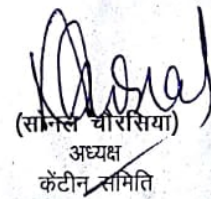 (सोनल चौरसिया)
अध्यक्ष
केंटीन समिति